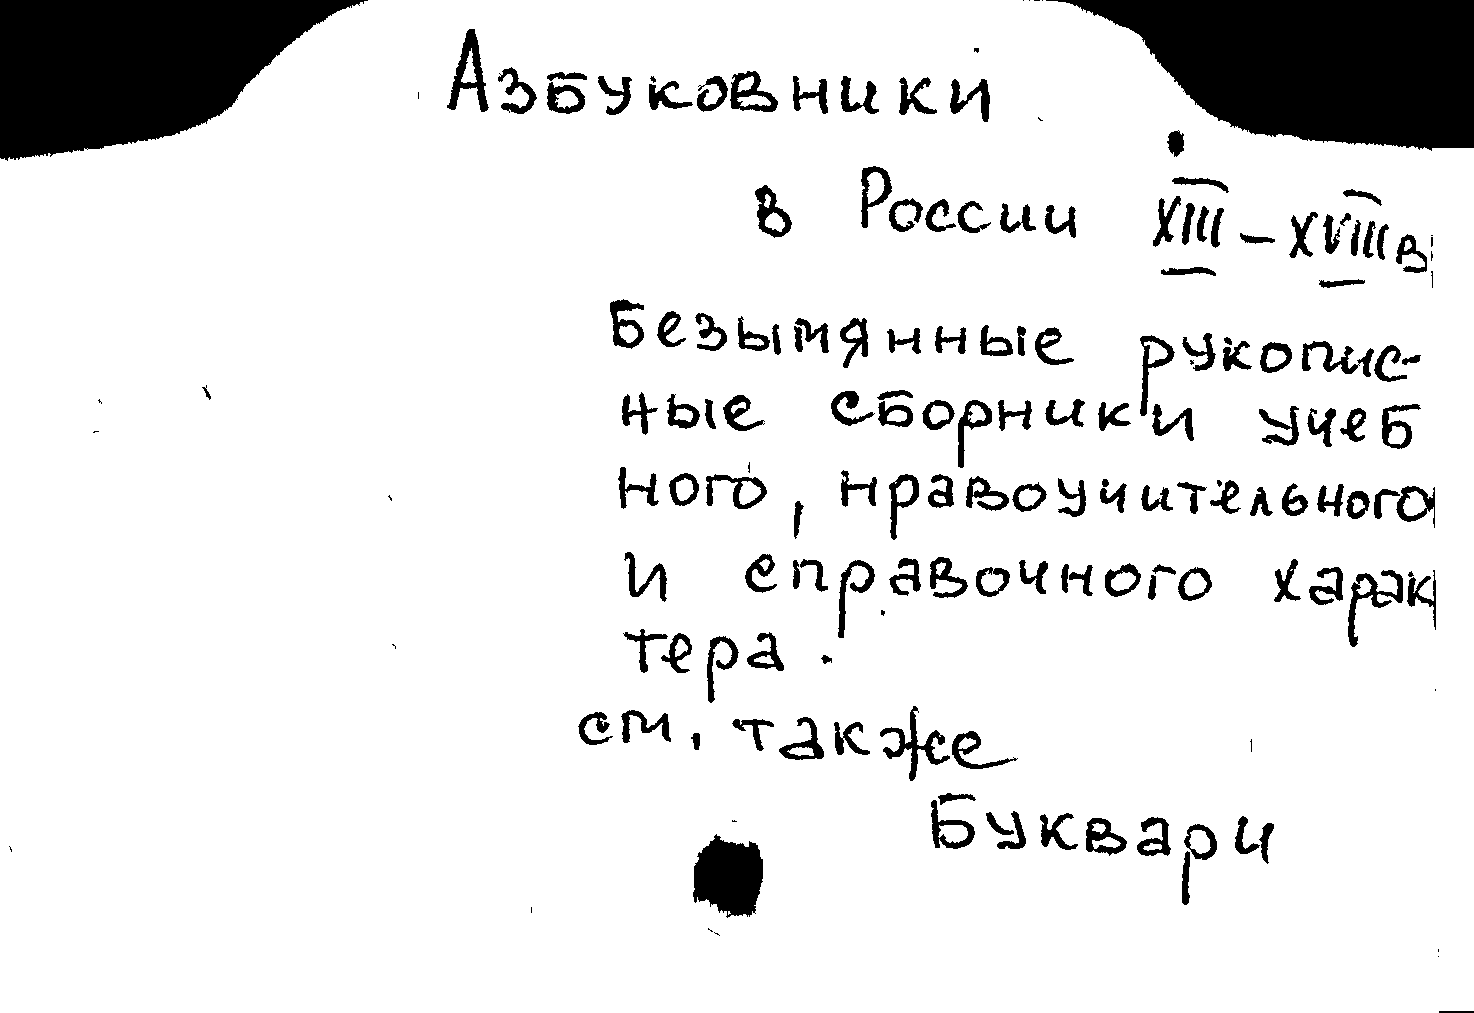 Азбуковники
в России XIII – XVIII в
Безымянные рукопис-
ные сборники учеб
ного, нравоучительного
и справочного харак
тера.
см. также
Буквари